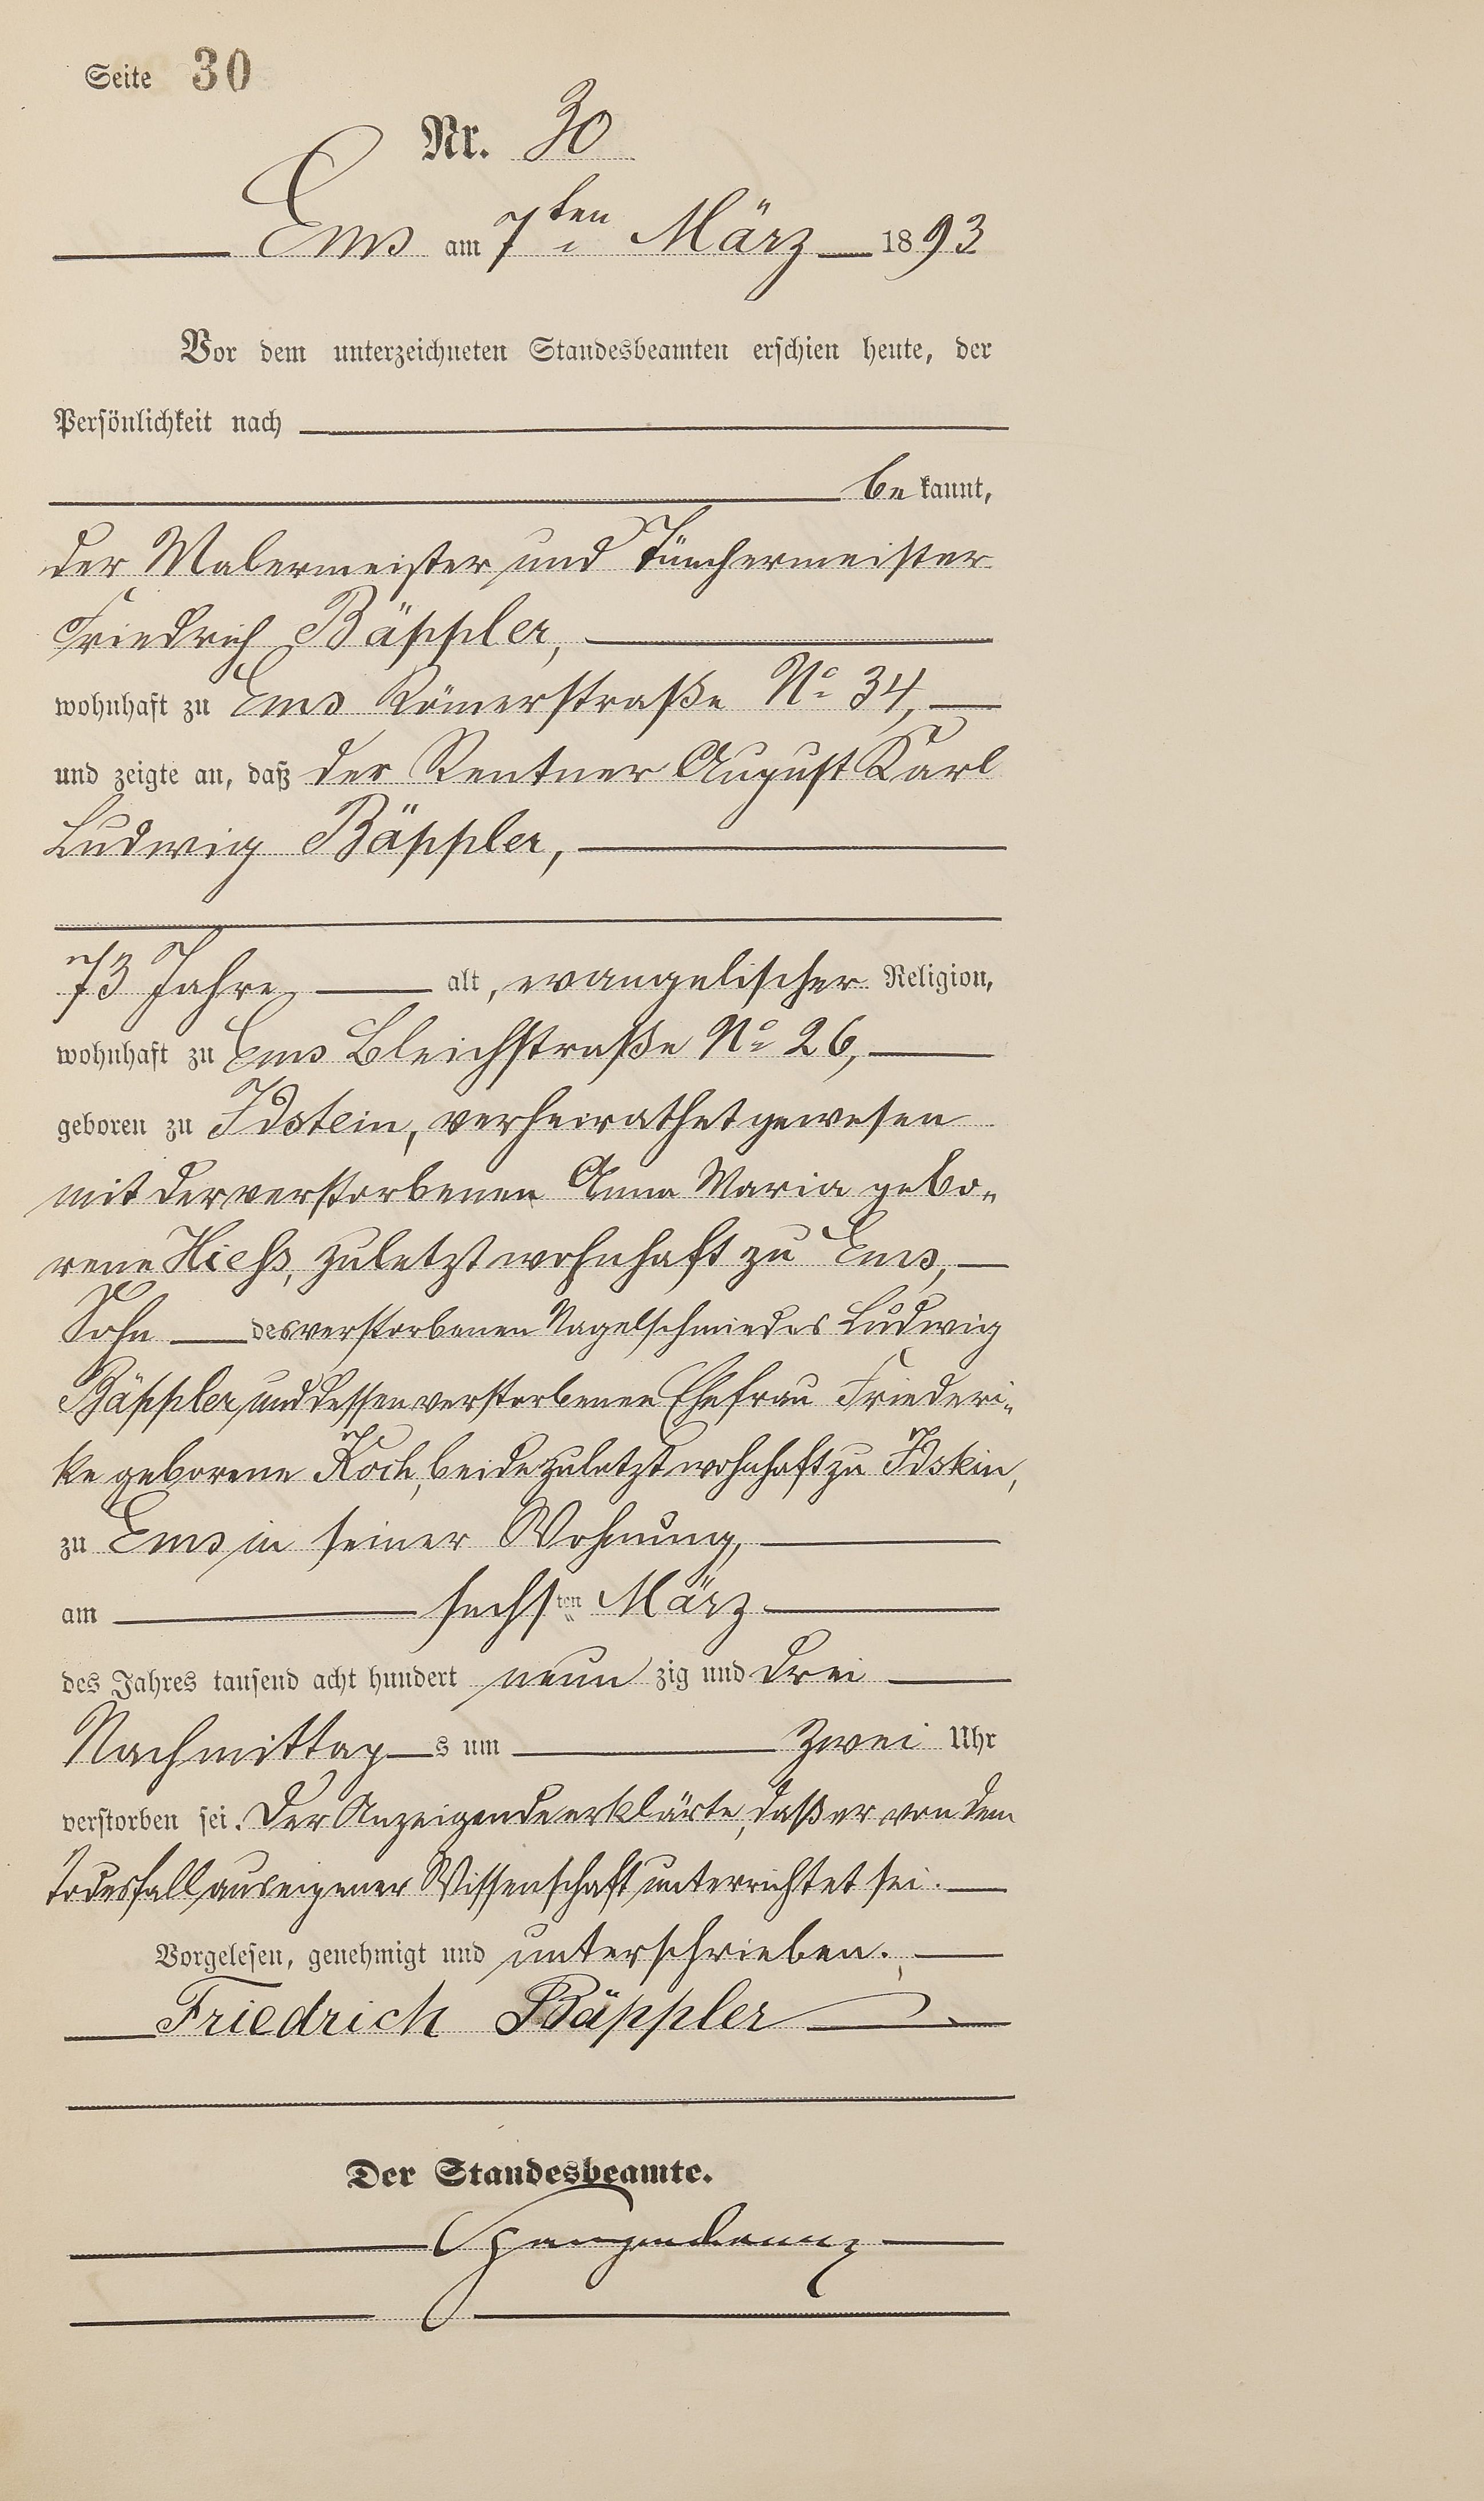 Seite 30
Nr. 30
Ems am 7ten März 1893
Vor dem unterzeichneten Standesbeamten erschien heute, der
Persönlichkeit nach
be kannt,
der Malermeister und Tünchermeister
Friedrich Bäppler,
wohnhaft zu Ems Römerstraße No 34,
und zeigte an, daß der Rentner August Karl
Ludwig Bäppler,
73 Jahre alt, evangelischer Religion,
wohnhaft zu Ems Bleichstraße No 26,
geboren zu Idstein, verheirathet gewesen
mit der verstorbenen Anna Maria gebo-
rene Hiehs, zuletzt wohnhaft zu Ems,
Sohn des verstorbenen Nagelschmiedes Ludwig
Bäppler und dessen verstorbenen Ehefrau Friederi-
ke geborene Koch, beide zuletzt wohnhaft zu Idstein,
zu Ems in seiner Wohnung,
am sechsten März
des Jahres tausend acht hundert neun zig und drei
Nachmittag s um zwei Uhr
verstorben sei. Der Anzeigende erklärte, daß er von dem
Todesfall aus eigener Wissenschaft unterrichtet sei.
Vorgelesen, genehmigt und unterschrieben.
Friedrich Bäppler
Der Standesbeamte.